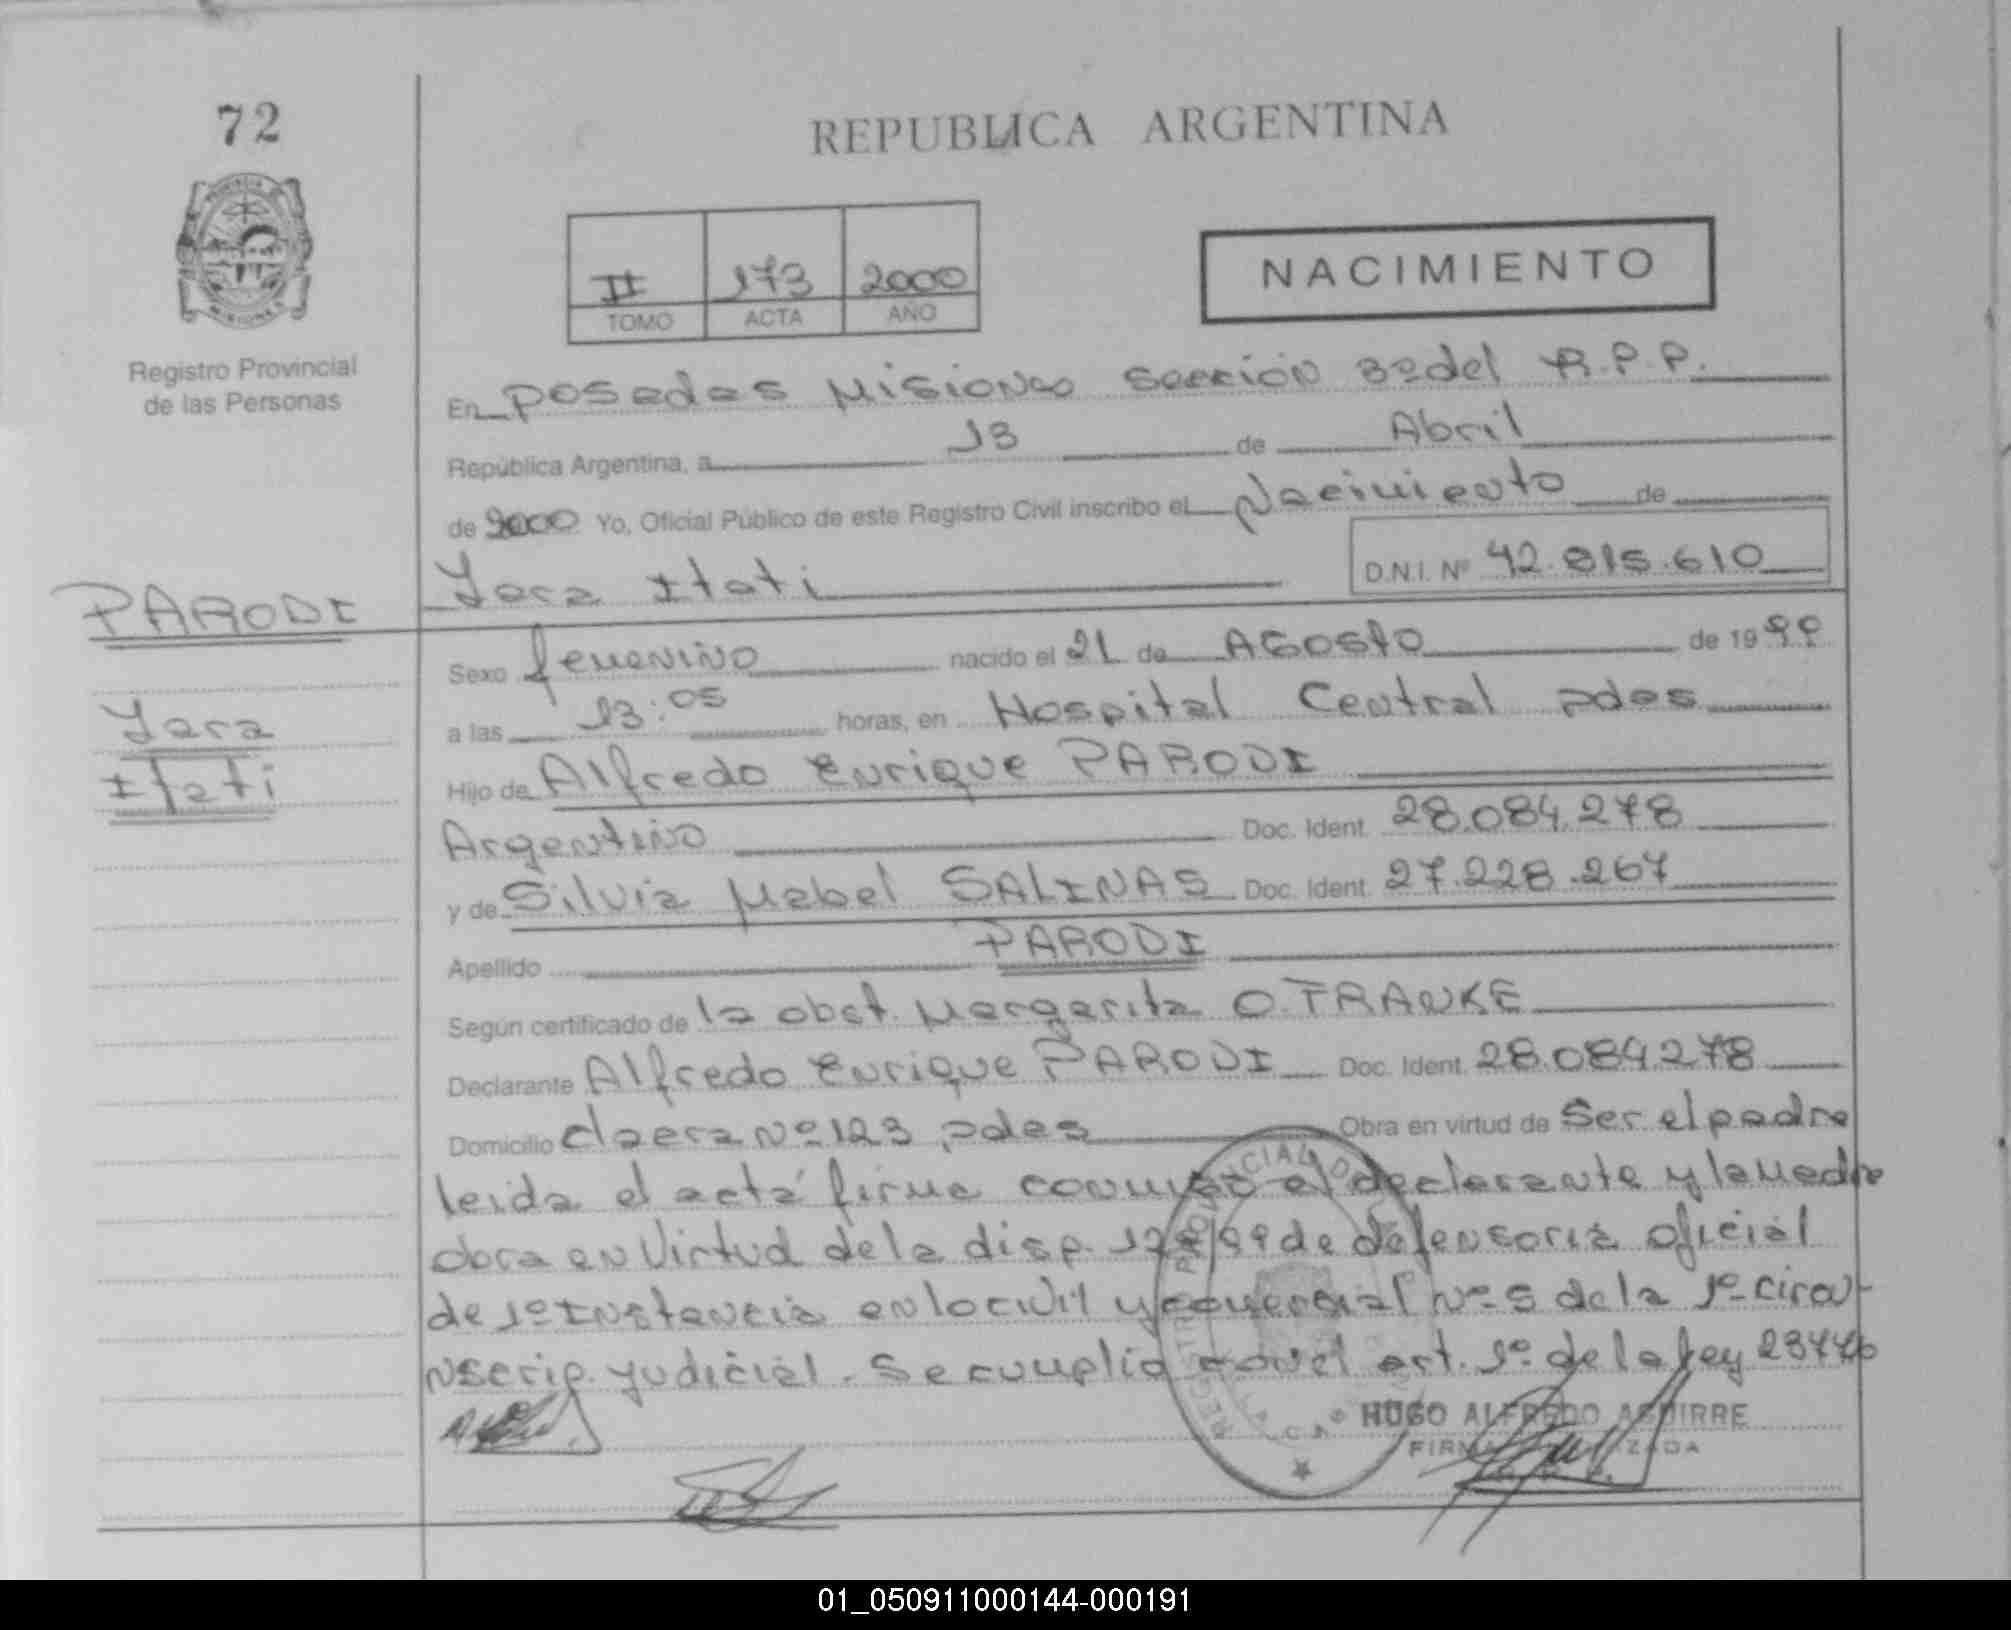 72
REPUBLICA ARGENTINA
PROVINCIA DE
MISIONES
Registro Provincial
de las Personas
II 173 2000
TOMO ACTA AÑO
NACIMIENTO
En Posadas Misiones sección 3º del R.P.P.
República Argentina, a 13 de Abril
de 2000 Yo, Oficial Público de este Registro Civil inscribo el Nacimiento de
Yara Itati D.N.I. Nº 42.815.610
PARODI
Yara
Itati
Sexo femenino nacido el 21 de AGosto de 1999
a las 13:05 horas, en Hospital Central pdas
Hijo de Alfredo Enrique PARODI
Argentino Doc. Ident. 28.084.278
y de Silvia Mabel SALINAS Doc. Ident. 27.228.267
Apellido PARODI
Según certificado de la obst. Margarita O. FRANKE
Declarante Alfredo Enrique PARODI Doc. Ident. 28.084.278
Domicilio Nº 123, pdas Obra en virtud de Ser el padre
leida el acta firma conmigo el declarante y la madre
obra en Virtud de la disp. de defensoria oficial
de 1º Instancia en lo civil y comercial Nº 5 de la 1º circu-
nscrip. judicial. Se cumplio con el art. 1º de la ley
HUGO ALFREDO AGUIRRE
01_050911000144-000191